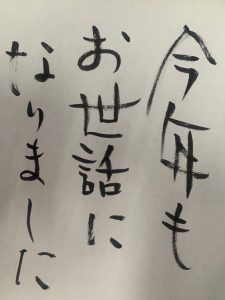 今年も
お世話に
なりました